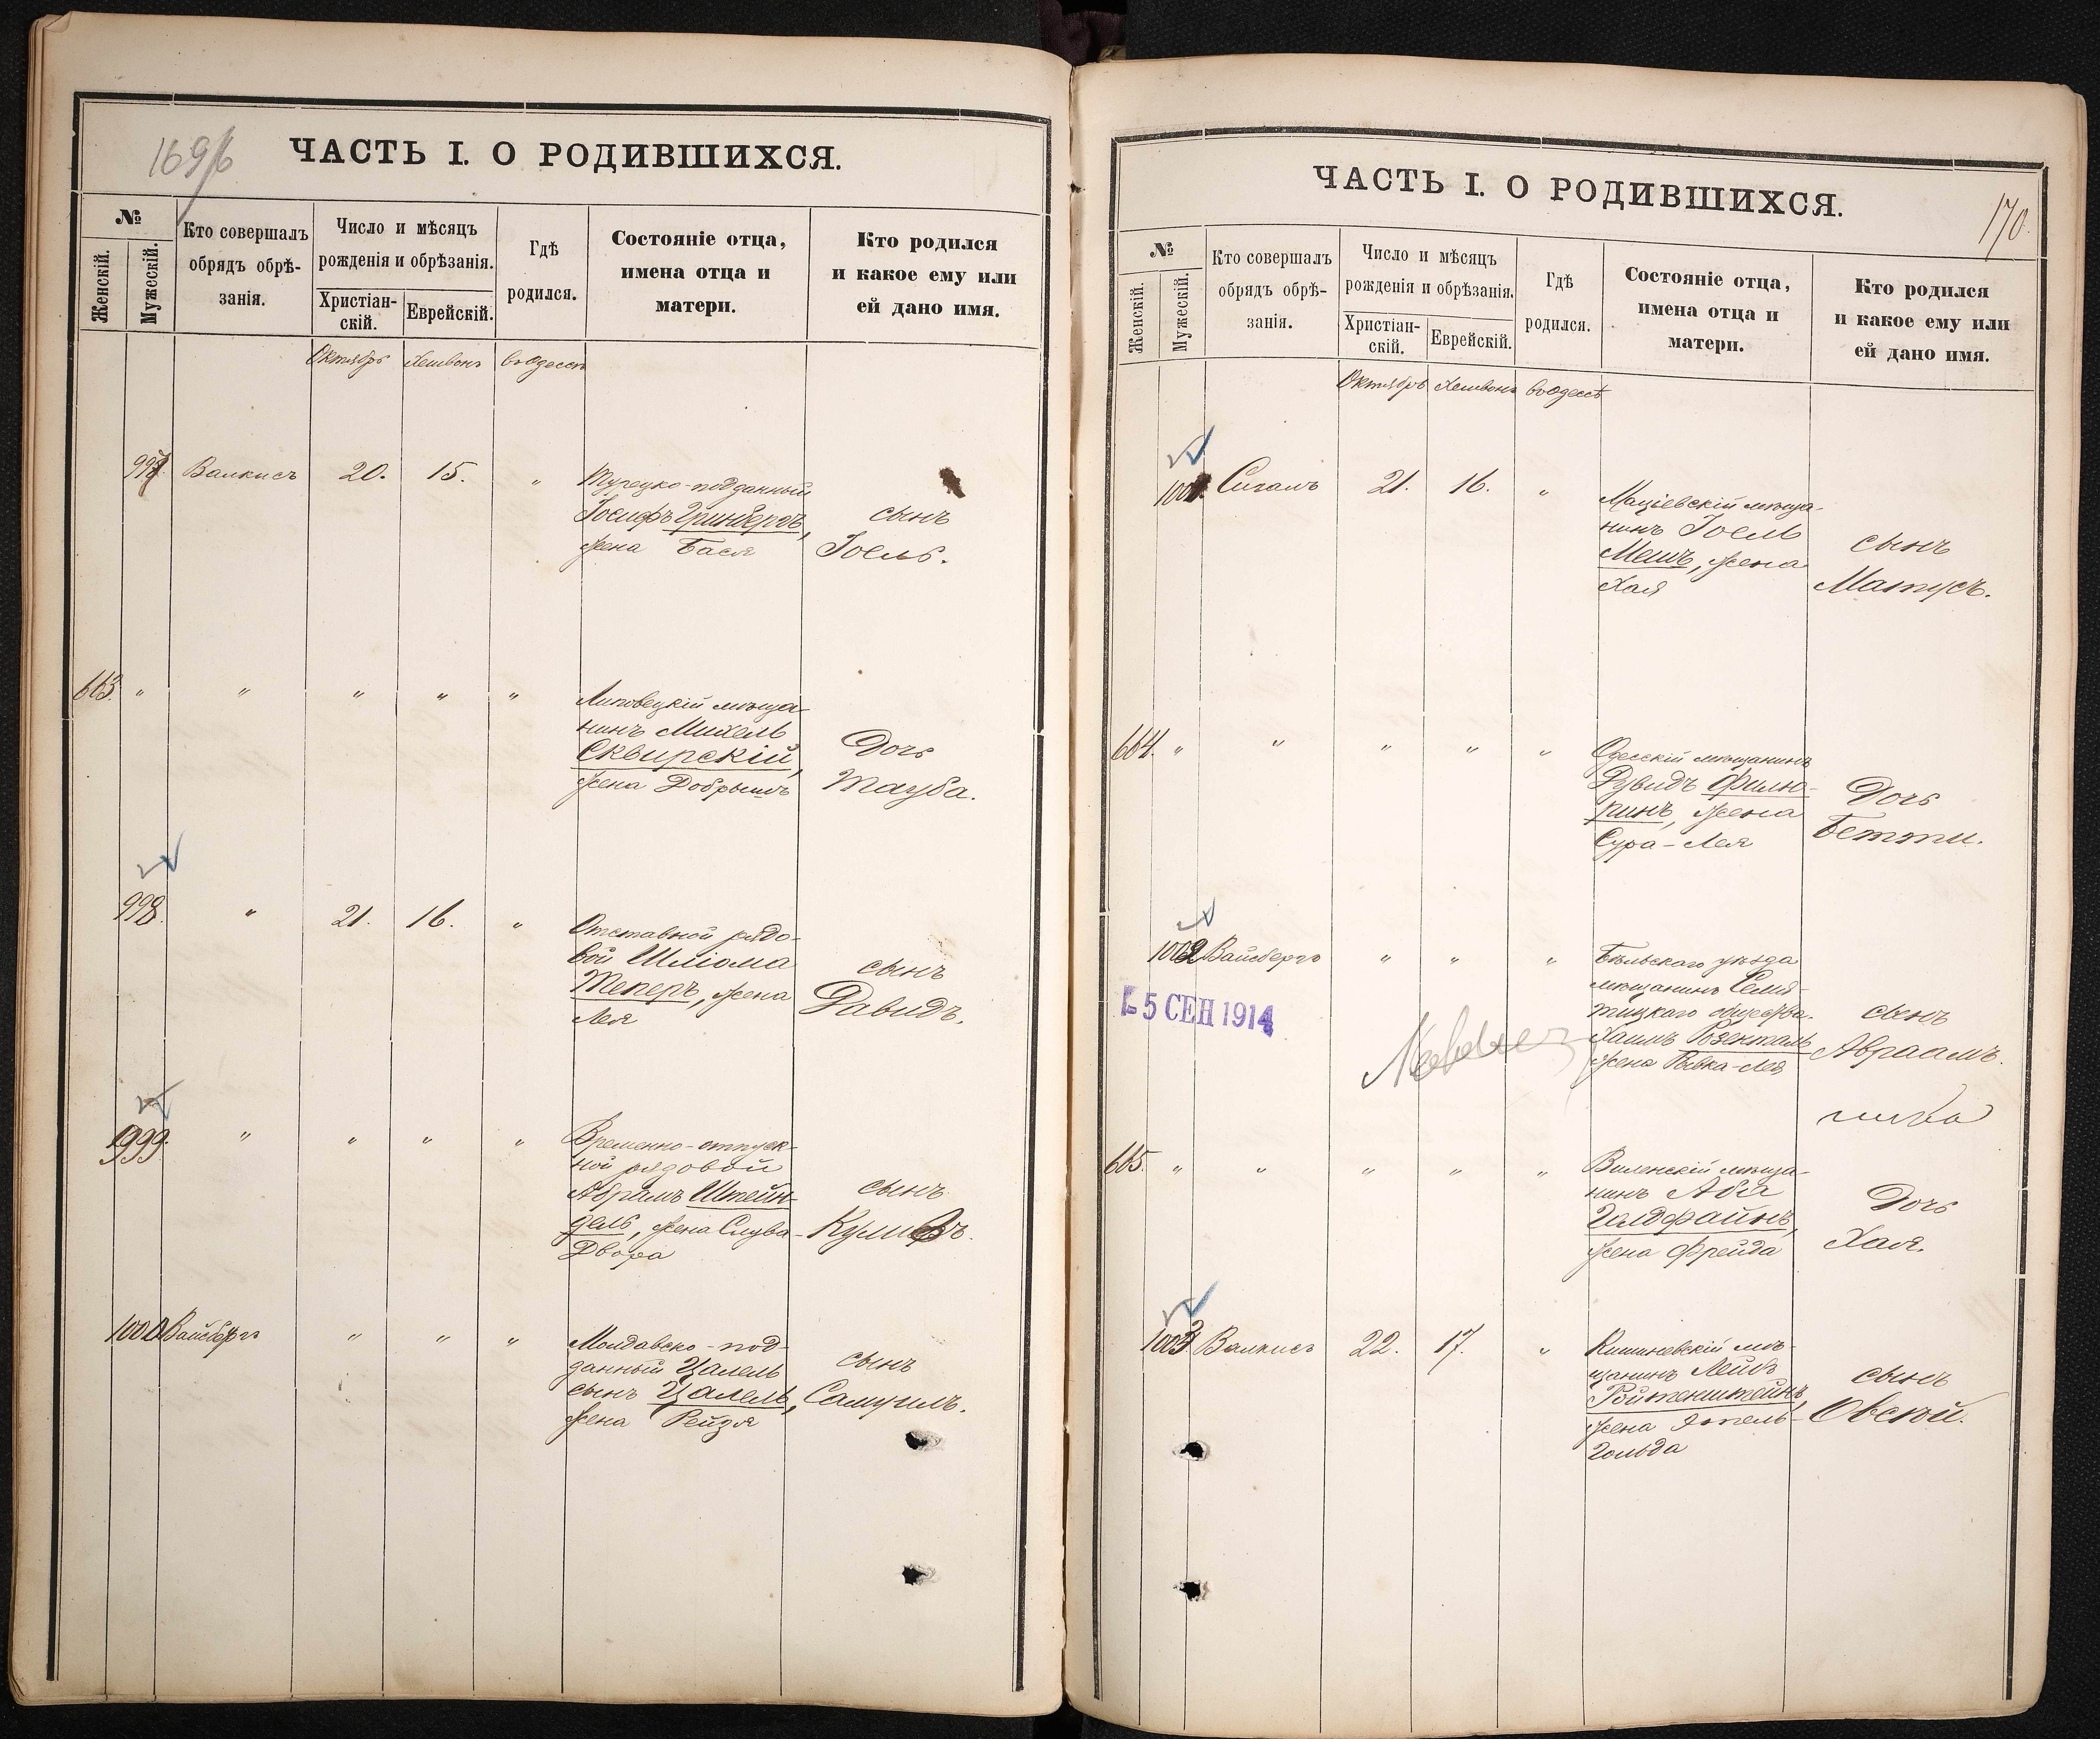 169/6
ЧАСТЬ I. О РОДИВШИХСЯ.
№
Женскій.
Мужескій.
Кто совершалъ
обрядъ обрѣ-
занія.
Число и мѣсяцъ
рожденія и обрѣзанія.
Христіан-
скій.
Еврейскій.
Гдѣ
родился.
Состояніе отца,
имена отца и
матери.
Кто родился
и какое ему или
ей дано имя.
Октябрь Хешвонъ въ Одессѣ
997. Валкисъ 20. 15. "
Турецко-подданный
Іосифъ Гринбергъ,
жена Бася
сынъ
Іоель.
663. " " " " "
Липовецкій мѣща-
нинъ Михель
Сквирскій,
жена Добрышъ
Дочь
Тауба.
998. " 21. 16. "
Отставной рядо-
вой Шліома
Теперъ, жена
Лея
сынъ
Давидъ.
999. " " " "
Временно-отпуск-
ной рядовой
Абрамъ Штейн-
дель, жена Слува-
Двора
сынъ
1000 Вайсбергъ " " "
Молдавско-под-
данный Цалель
сынъ Цалель,
жена Рейзя
сынъ
Самуилъ.
ЧАСТЬ I. О РОДИВШИХСЯ.
170.
№
Женскій.
Мужескій.
Кто совершалъ
обрядъ обрѣ-
занія.
Число и мѣсяцъ
рожденія и обрѣзанія.
Христіан-
скій.
Еврейскій.
Гдѣ
родился.
Состояніе отца,
имена отца и
матери.
Кто родился
и какое ему или
ей дано имя.
Октябрь Хешвонъ въ Одессѣ
1001. Сигалъ 21. 16. "
Маціевскій мѣща-
нинъ Іоель
Мешъ, жена
Хая
сынъ
Матусъ.
664. " " " " "
Одесскій мѣщанинъ
Дувидъ Филю-
ринъ, жена
Сура-Лея
Дочь
Бетти.
1002 Вайсбергъ " " "
Бѣльскаго уѣзда
мѣщанинъ Семя-
тицкаго общества.
Хаимъ Розенталь
жена Ривка-Лея
сынъ
Авраамъ.
5 СЕН 1914
665. " " " " "
Виленскій мѣща-
нинъ Аба
Гелдфайнъ,
жена Фрейда
Дочь
Хая.
1003 Валкисъ 22. 17. "
Кишиневскій мѣ-
щанинъ Лейбъ
Ройтенштейнъ,
жена Этель-
Гольда
сынъ
Овсѣй.